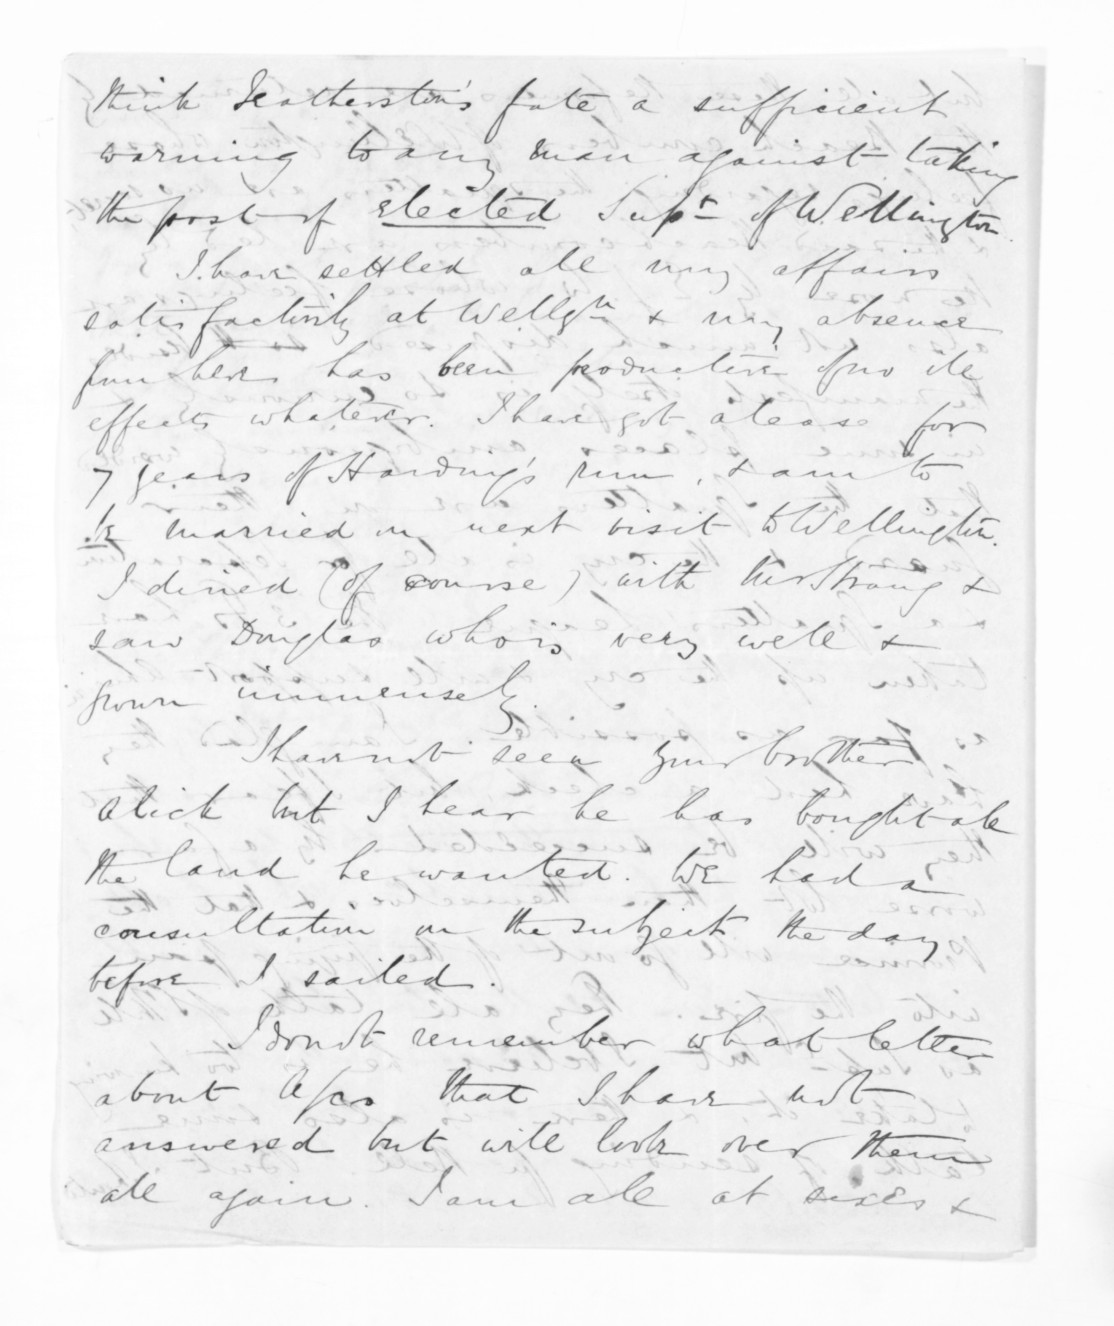 think Featherston's fate a sufficient
warning to any man against taking
the post of elected Supt of Wellington.
I have settled all my affairs
satisfactorily at Wellgtn & my absence
from here has been productive of no ill
effects whatever. I have got a lease for
7 years of Harding's run, & am to
be married on next visit to Wellington.
I dined (of course) with the Strang &
saw Douglas who is very well &
grown immensely.
I have not seen your brother
Alick but I hear he has bought all
the land he wanted. We had a
consultation on the subject the day
before I sailed.
I don't remember what letter
about a/cs that I have not
answered but will look over them
all again. I am all at sixes &